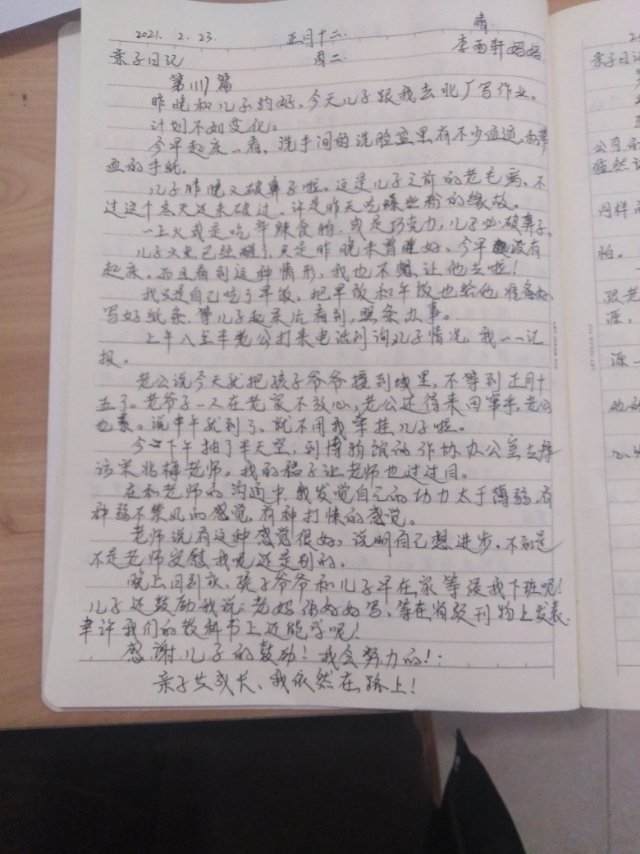 晴
2021. 2. 23. 正月十二.
亲子日记 周二 李雨轩妈妈
第1117篇
昨晚和儿子约好,今天儿子跟我去北厂写作业。
计划不如变化。
今早起床一看,洗手间的洗脸盆里有不少血迹,和带
血的手纸。
儿子昨晚又破鼻子啦。这是儿子之前的老毛病,不
过这个冬天还未破过。许是昨天吃辣的缘故。
一上火或是吃辛辣食物,或是巧克力,儿子必破鼻子。
儿子六点已经醒了,只是昨晚未曾睡好,今早没有
起床。而且看到这种情形,我也不想让他去啦!
我又是自己吃了早饭,把早饭和午饭也给他准备好
写好纸条,等儿子起来后看到,照条办事。
上午八点半老公打来电话问询儿子情况,我一一汇
报。
老公说今天就把孩子爷爷接到城里,不等到正月十
五了。老爷子一人在老家不放心,老公还得来回牵挂,老公
也累。说中午就到了,就不用我牵挂儿子啦。
今下午抽了半天空,到博物馆的作协办公室去拜
访宋兆梅老师。我的稿子让老师也过过目。
在和老师的沟通中,我发觉自己的功力太于薄弱,有
种弱不禁风的感觉,有种打怵的感觉。
老师说有这种感觉很好,说明自己想进步。不知是
不是老师安慰我呢还是别的。
晚上回到家,孩子爷爷和儿子早在家等候我下班呢!
儿子还鼓励我说:老妈,你好好写,等在省级刊物上发表,
幸许我们的教科书上还能学呢!
感谢儿子的鼓励!我会努力的!
亲子共成长、我依然在路上!
亲子日记
公司
同样
怕。
源
源一